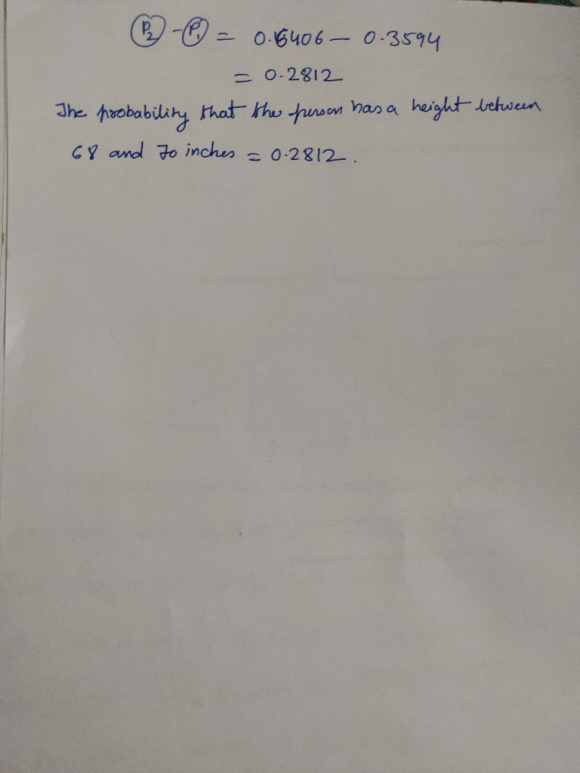 P2 - P1 = 0.6406 - 0.3594
= 0.2812
The probability that the person has a height between
68 and 70 inches = 0.2812.